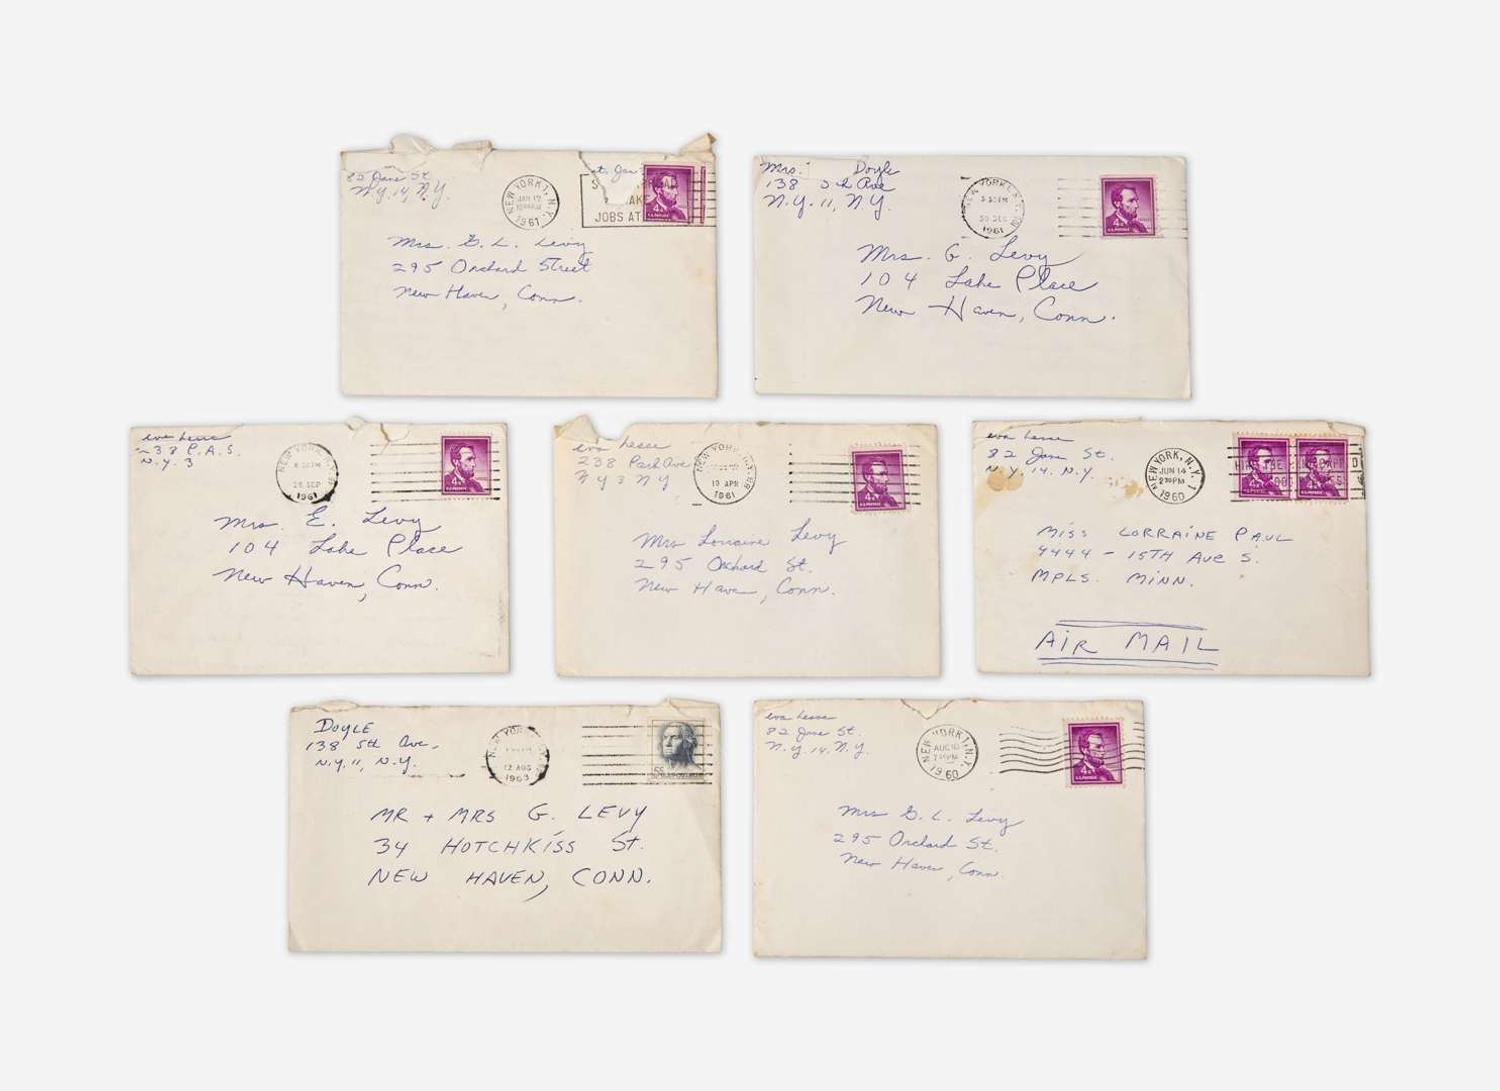 85 Jane St
N.Y. 14, N.Y.
NEW YORK 1, N.Y.
JAN 17
1961
JOBS AT
4¢
Mrs. G. L. Levy
295 Orchard Street
New Haven, Conn.
Mrs. Doyle
138 5th Ave
N.Y. 11, N.Y.
NEW YORK 1, N.Y.
30 DEC
1961
4¢
Mrs. G. Levy
104 Lake Place
New Haven, Conn.
eva hesse
238 P.A.S.
N.Y. 3
NEW YORK
26 SEP
1961
4¢
Mrs. E. Levy
104 Lake Place
New Haven, Conn.
eva hesse
238 Park Ave
NY 3 NY
NEW YORK
APR
1961
4¢
Mrs Lorraine Levy
295 Orchard St.
New Haven, Conn.
eva hesse
82 Jane St.
N.Y. 14. N.Y.
NEW YORK, N.Y. 1
JUN 14
2 30 PM
1960
4¢ 4¢
MISS LORRAINE PAUL
4444 - 15TH AVE S.
MPLS. MINN.
AIR MAIL
DOYLE
138 5th Ave.
N.Y. 11, N.Y.
NEW YORK
12 AUG
1963
5¢
MR + MRS G. LEVY
34 HOTCHKISS ST.
NEW HAVEN, CONN.
eva hesse
82 Jane St.
N.Y. 14. N.Y.
NEW YORK 1, N.Y.
AUG 10
1960
4¢
Mrs G. L. Levy
295 Orchard St.
New Haven, Conn.